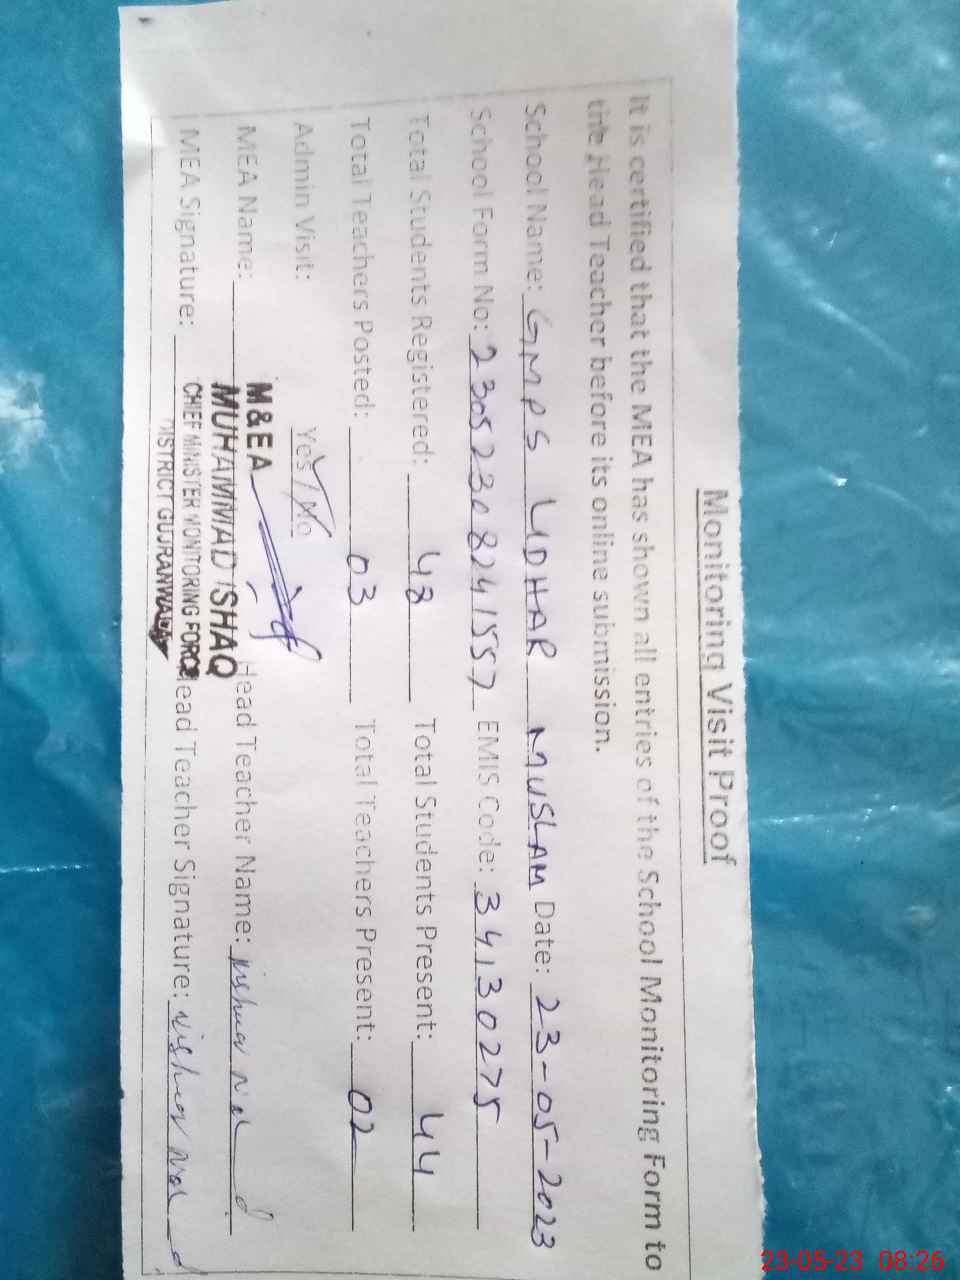 Monitoring Visit Proof
It is certified that the MEA has shown all entries of the School Monitoring Form to
the Head Teacher before its online submission.
School Name: GMPS LIDHAR MUSLAM Date: 23-05-2023
School Form No: 23052308241557 EMIS Code: 34130275
Total Students Registered: 48 Total Students Present: 44
Total Teachers Posted: 03 Total Teachers Present: 02
Admin Visit: Yes / No
MEA Name: Head Teacher Name:
MEA Signature: Head Teacher Signature:
M&EA
MUHAMMAD ISHAQ
CHIEF MINISTER MONITORING FORCE
DISTRICT GUJRANWALA
23-05-23 08:26